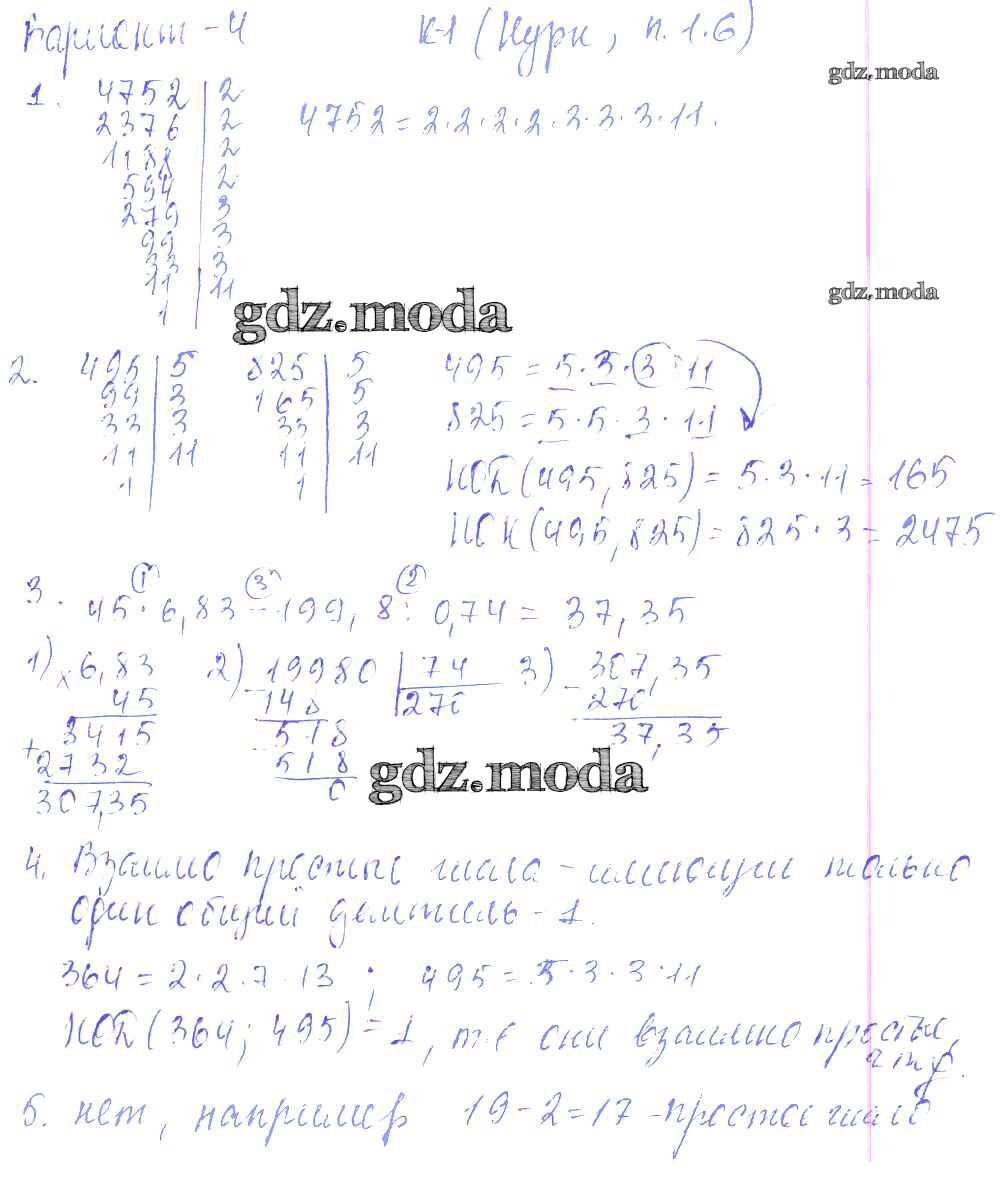 Вариант - 4 К-1 (Нурк, п. 1.6)
gdz.moda
1. 4752 | 2 4752 = 2·2·2·2·3·3·3·11.
2376 | 2
1188 | 2
594 | 2
279 | 3
99 | 3
33 | 3
11 | 11
1
gdz.moda
gdz.moda
2. 495 | 5 825 | 5 495 = 5·3·3·11
99 | 3 165 | 5
33 | 3 33 | 3 825 = 5·5·3·11
11 | 11 11 | 11
1 1
НОД(495, 825) = 5·3·11 = 165
НОК(495, 825) = 825·3 = 2475
1 3 2
3. 45·6,83 - 199,8 : 0,74 = 37,35
1) × 6,83 2) 19980 | 74 3) 307,35
45 - 148 270 - 270
3415 518 37,35
+ 2732 - 518
307,35 0
gdz.moda
4. Взаимо простые числа - имеющии только
один общий делитель - 1.
364 = 2·2·7·13 ; 495 = 5·3·3·11
НОД(364; 495) = 1, т.е они взаимно простые,
чтд.
5. нет, например 19 - 2 = 17 - простое число